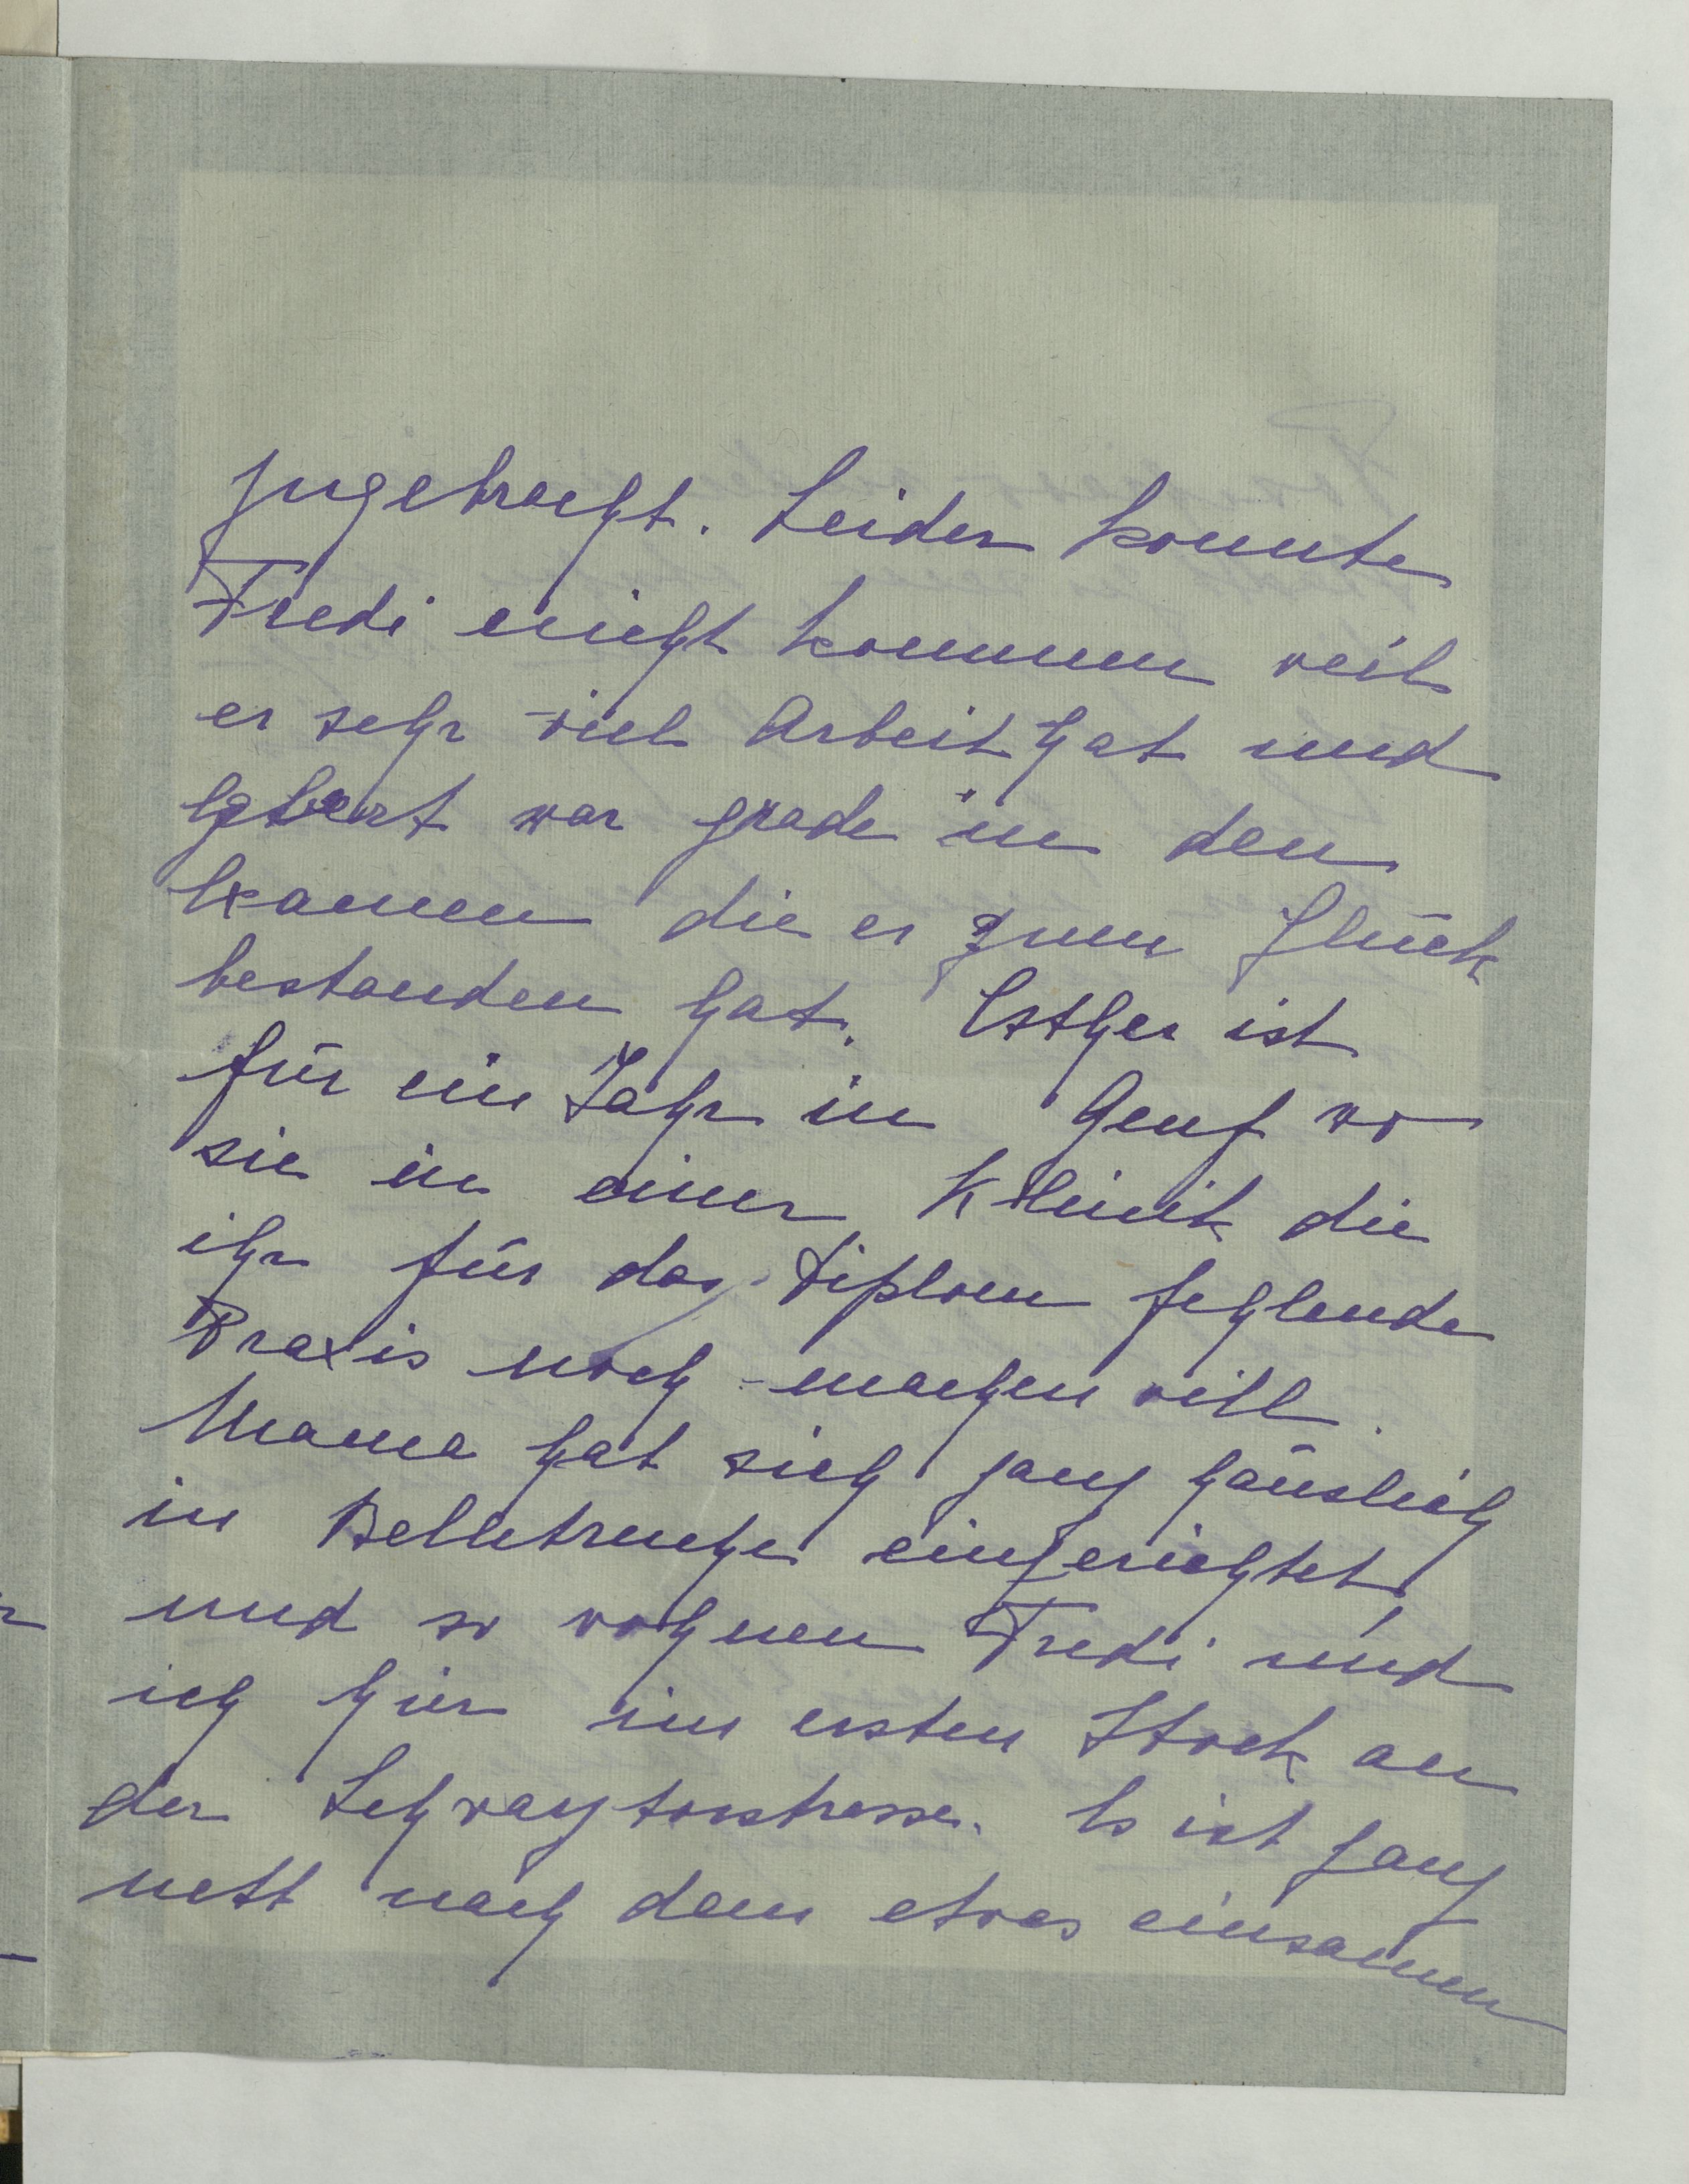 zugebracht. Leider konnte
Fredi nicht kommen weil
er sehr viel Arbeit hat und
Egbert war grade in den
Examen die er zum Glück
bestanden hat. Esther ist
für ein Jahr in Genf wo
sie in einer Klinik die
ihr für das Diplom fehlende
Praxis noch machen will.
Mama hat sich ganz häuslich
in Belletruche eingerichtet
und so wohnen Fredi und
ich hier im ersten Stock an
der Schwarztorstrasse. Es ist ganz
nett nach dem etwas einsamen